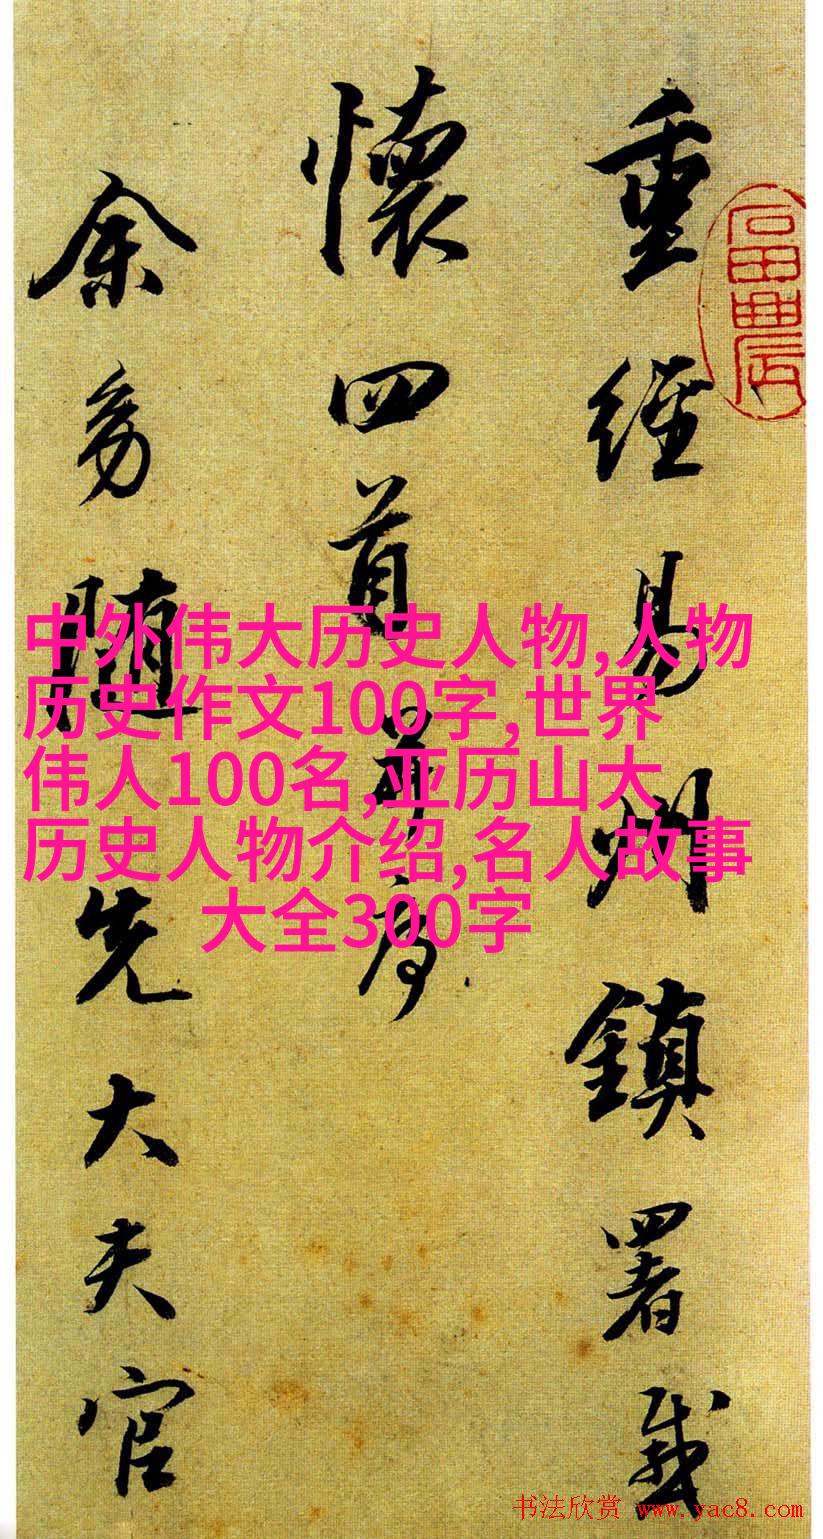 重經易州鎮署感
懷四首并序
余幼隨先大夫官
中外伟大历史人物,人物
历史作文100字,世界
伟人100名,亚历山大
历史人物介绍,名人故事
大全300字
书法欣赏 www.yac8.com